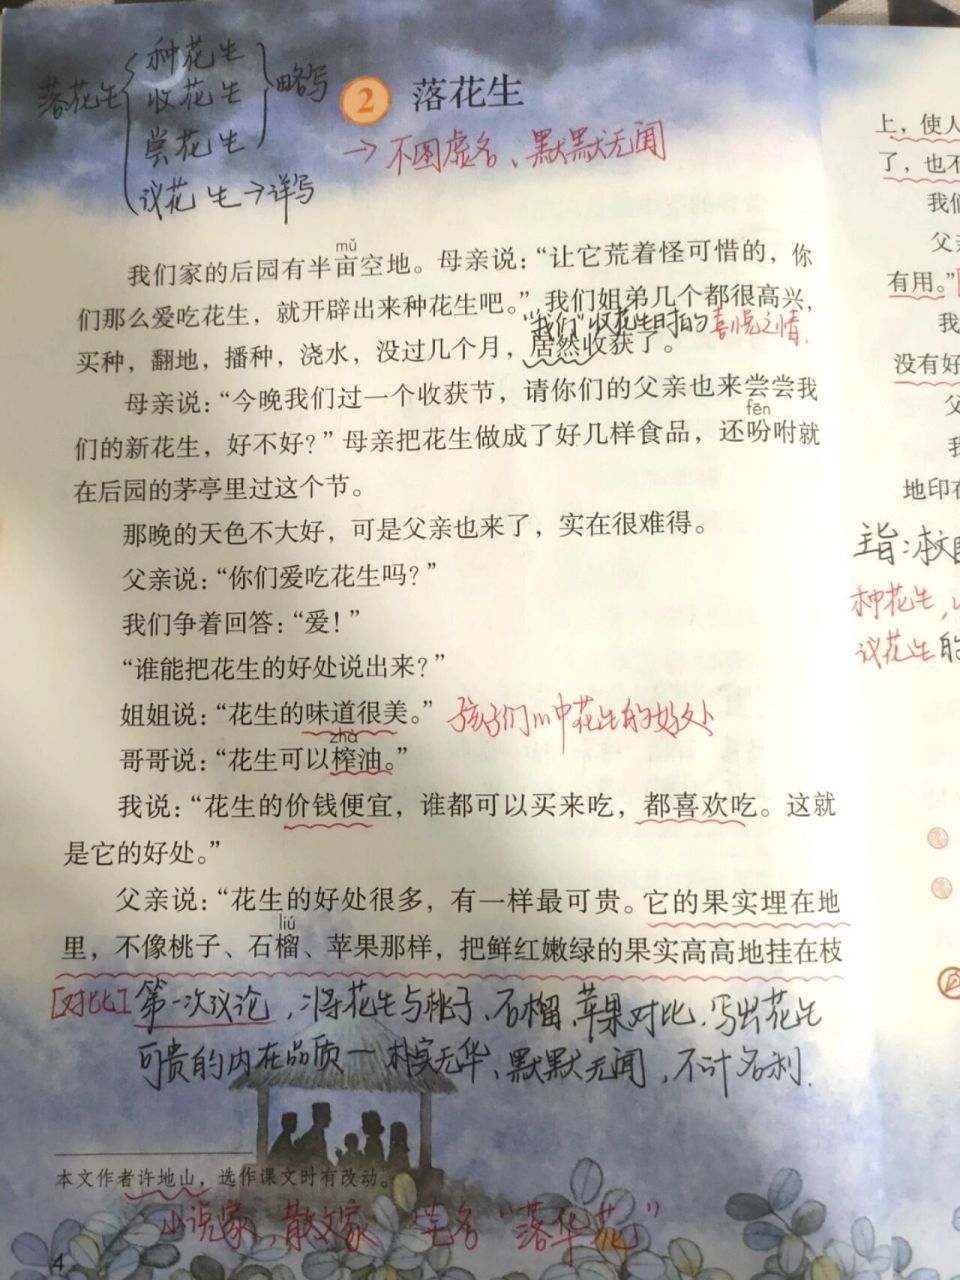 落花生
种花生
收花生
尝花生
略写
议花生→详写
2 落花生
→不图虚名、默默无闻
mǔ
我们家的后园有半亩空地。母亲说：“让它荒着怪可惜的，你
们那么爱吃花生，就开辟出来种花生吧。”我们姐弟几个都很高兴，
“我们”收花生时的喜悦之情.
买种，翻地，播种，浇水，没过几个月，居然收获了。
母亲说：“今晚我们过一个收获节，请你们的父亲也来尝尝我
fēn
们的新花生，好不好？”母亲把花生做成了好几样食品，还吩咐就
在后园的茅亭里过这个节。
那晚的天色不大好，可是父亲也来了，实在很难得。
父亲说：“你们爱吃花生吗？”
我们争着回答：“爱！”
“谁能把花生的好处说出来？”
姐姐说：“花生的味道很美。” 孩子们心中花生的好处
zhà
哥哥说：“花生可以榨油。”
我说：“花生的价钱便宜，谁都可以买来吃，都喜欢吃。这就
是它的好处。”
父亲说：“花生的好处很多，有一样最可贵。它的果实埋在地
liú
里，不像桃子、石榴、苹果那样，把鲜红嫩绿的果实高高地挂在枝
[对比]第一次议论，将花生与桃子、石榴、苹果对比.写出花生
可贵的内在品质—朴实无华、默默无闻，不计名利.
本文作者许地山，选作课文时有改动。
小说家、散文家 笔名“落华花”
4
上，使人
了，也不
我们
父亲
有用。”
我
没有好
父
我
地印在
主旨：本文
种花生，
议花生的